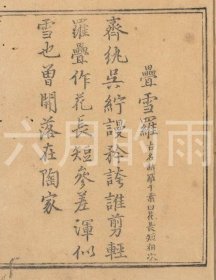 疊雪羅
齊紈吳紵謾矜誇誰剪輕
羅疊作花長短參差渾似
雪也曾開落在陶家
六月的雨